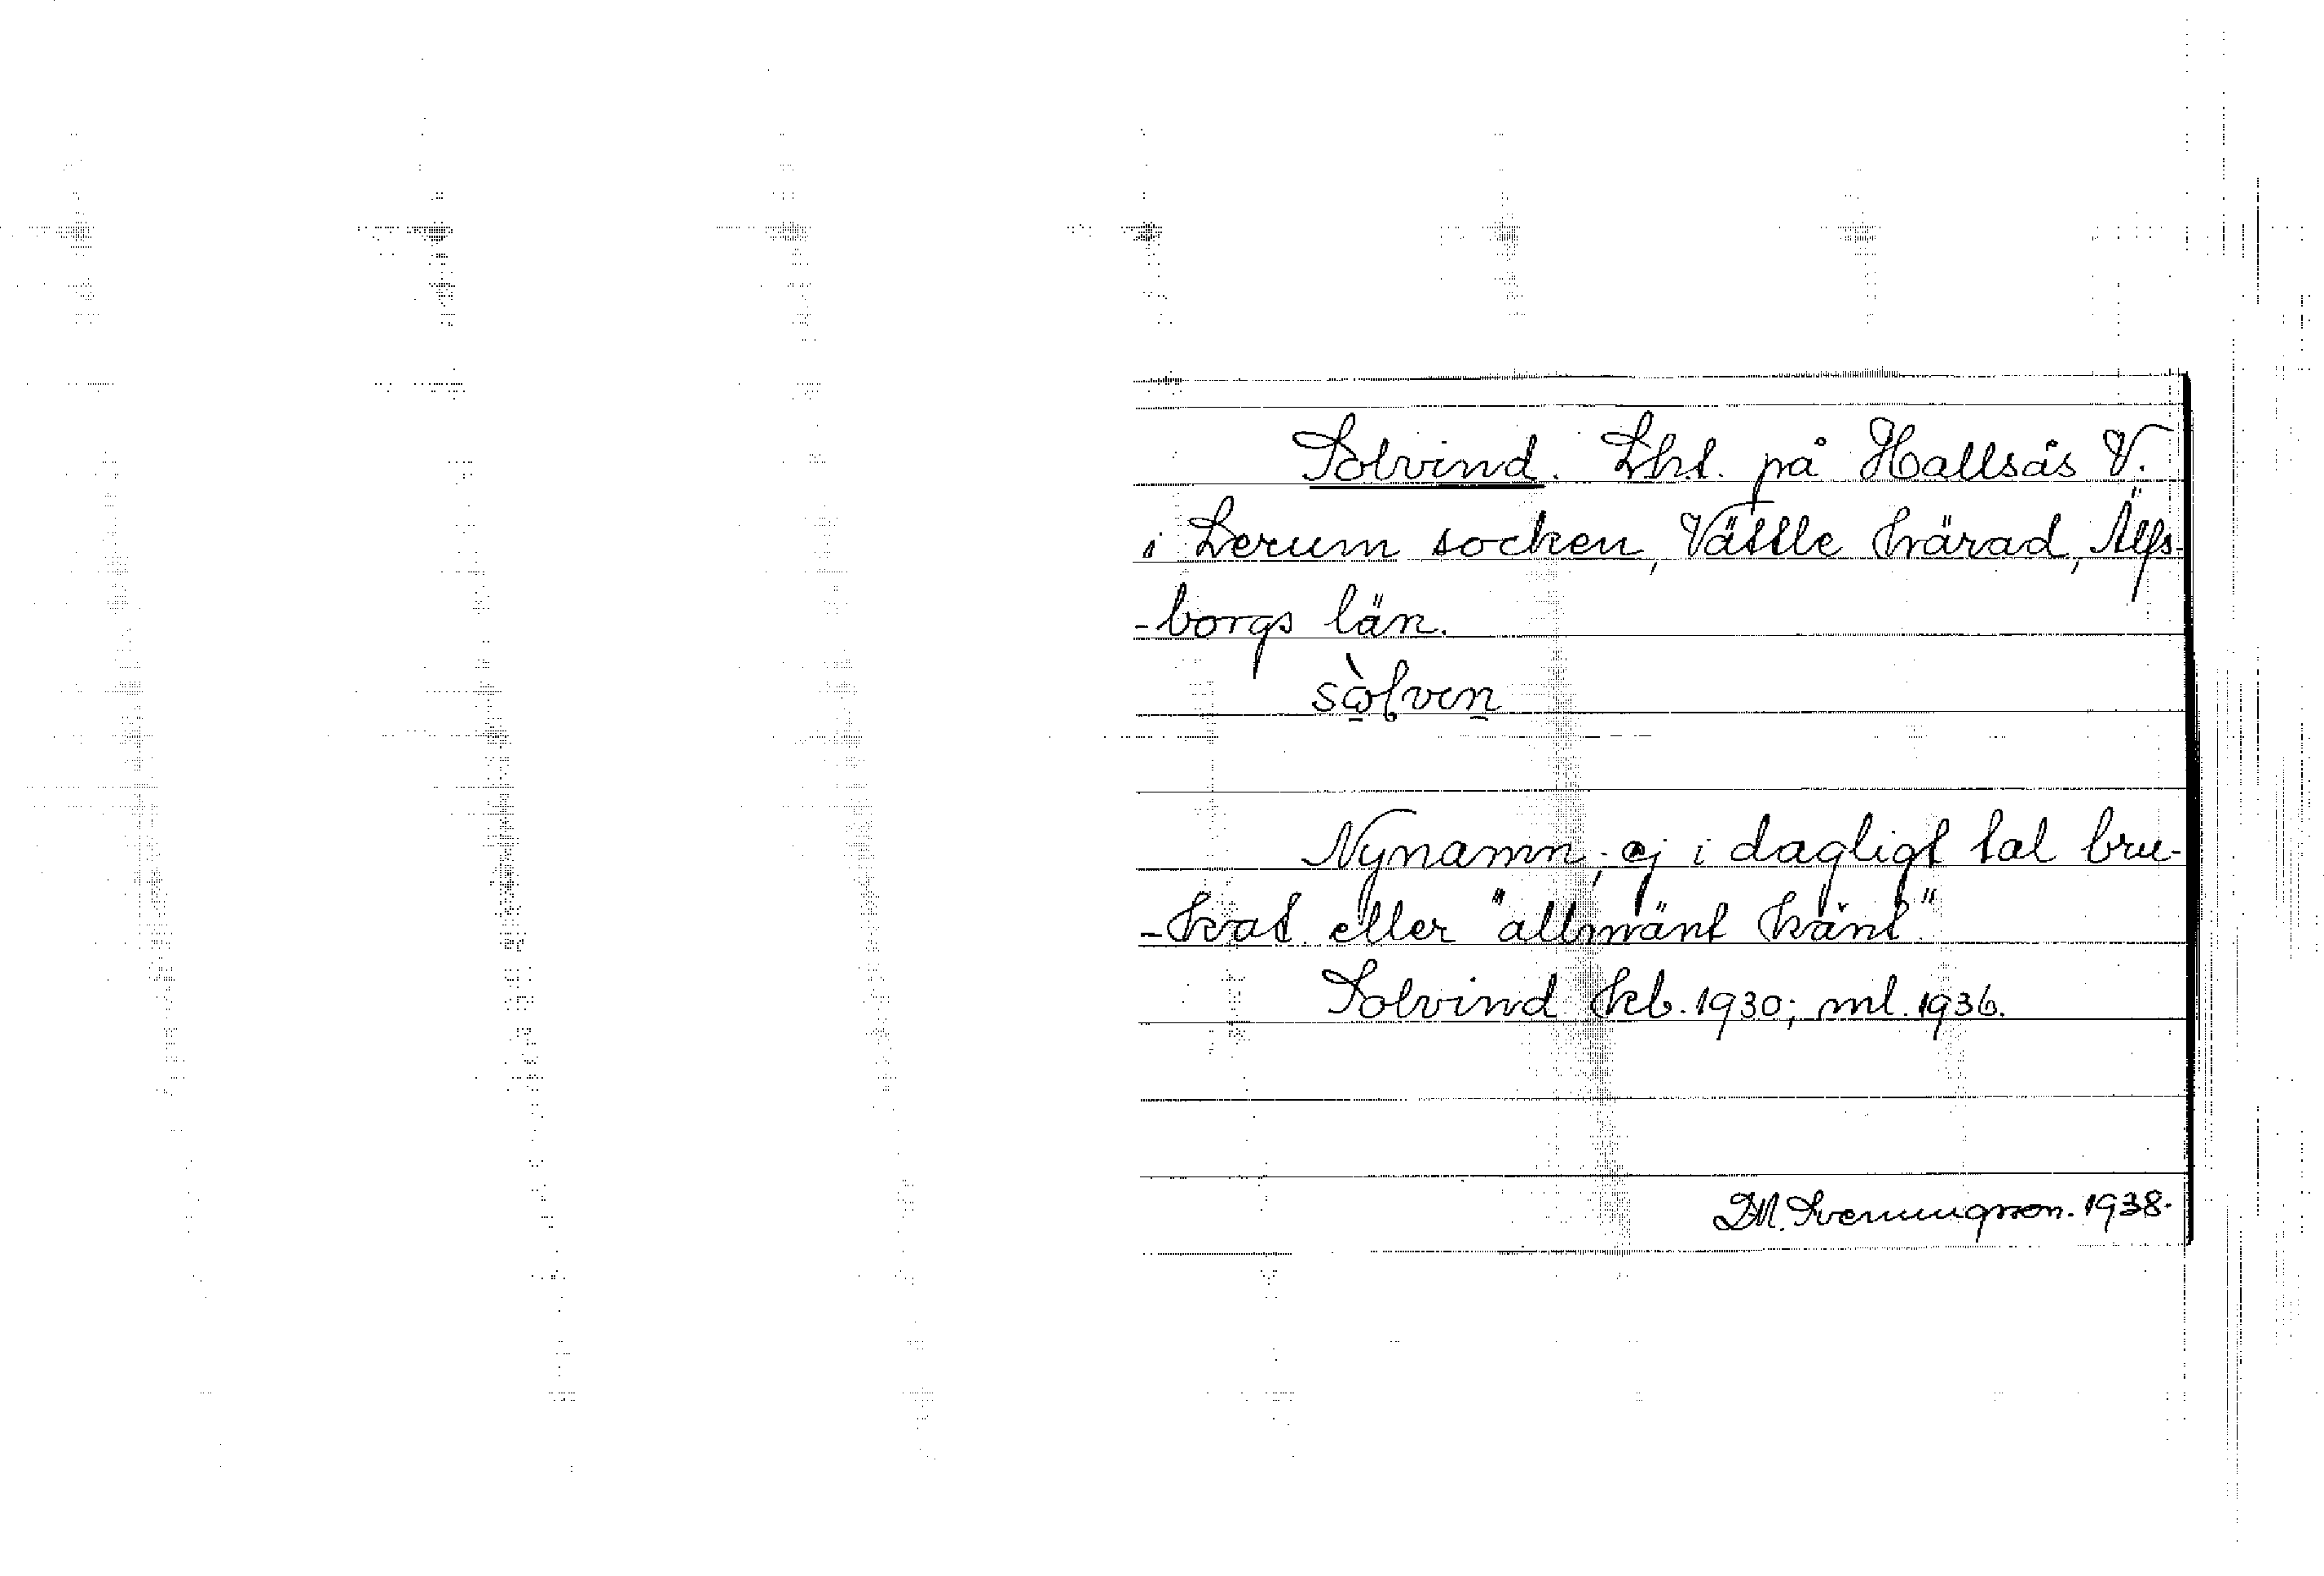 Solvind. Lht. på Hallsås V.
i Lerum socken, Vättle härad, Älfs-
-borgs län.
sòlven
Nynamn; ej i dagligt tal bru-
-kat eller "allmänt känt"
Solvind kb. 1930; ml. 1936.
D.M. Svenungsson. 1938.